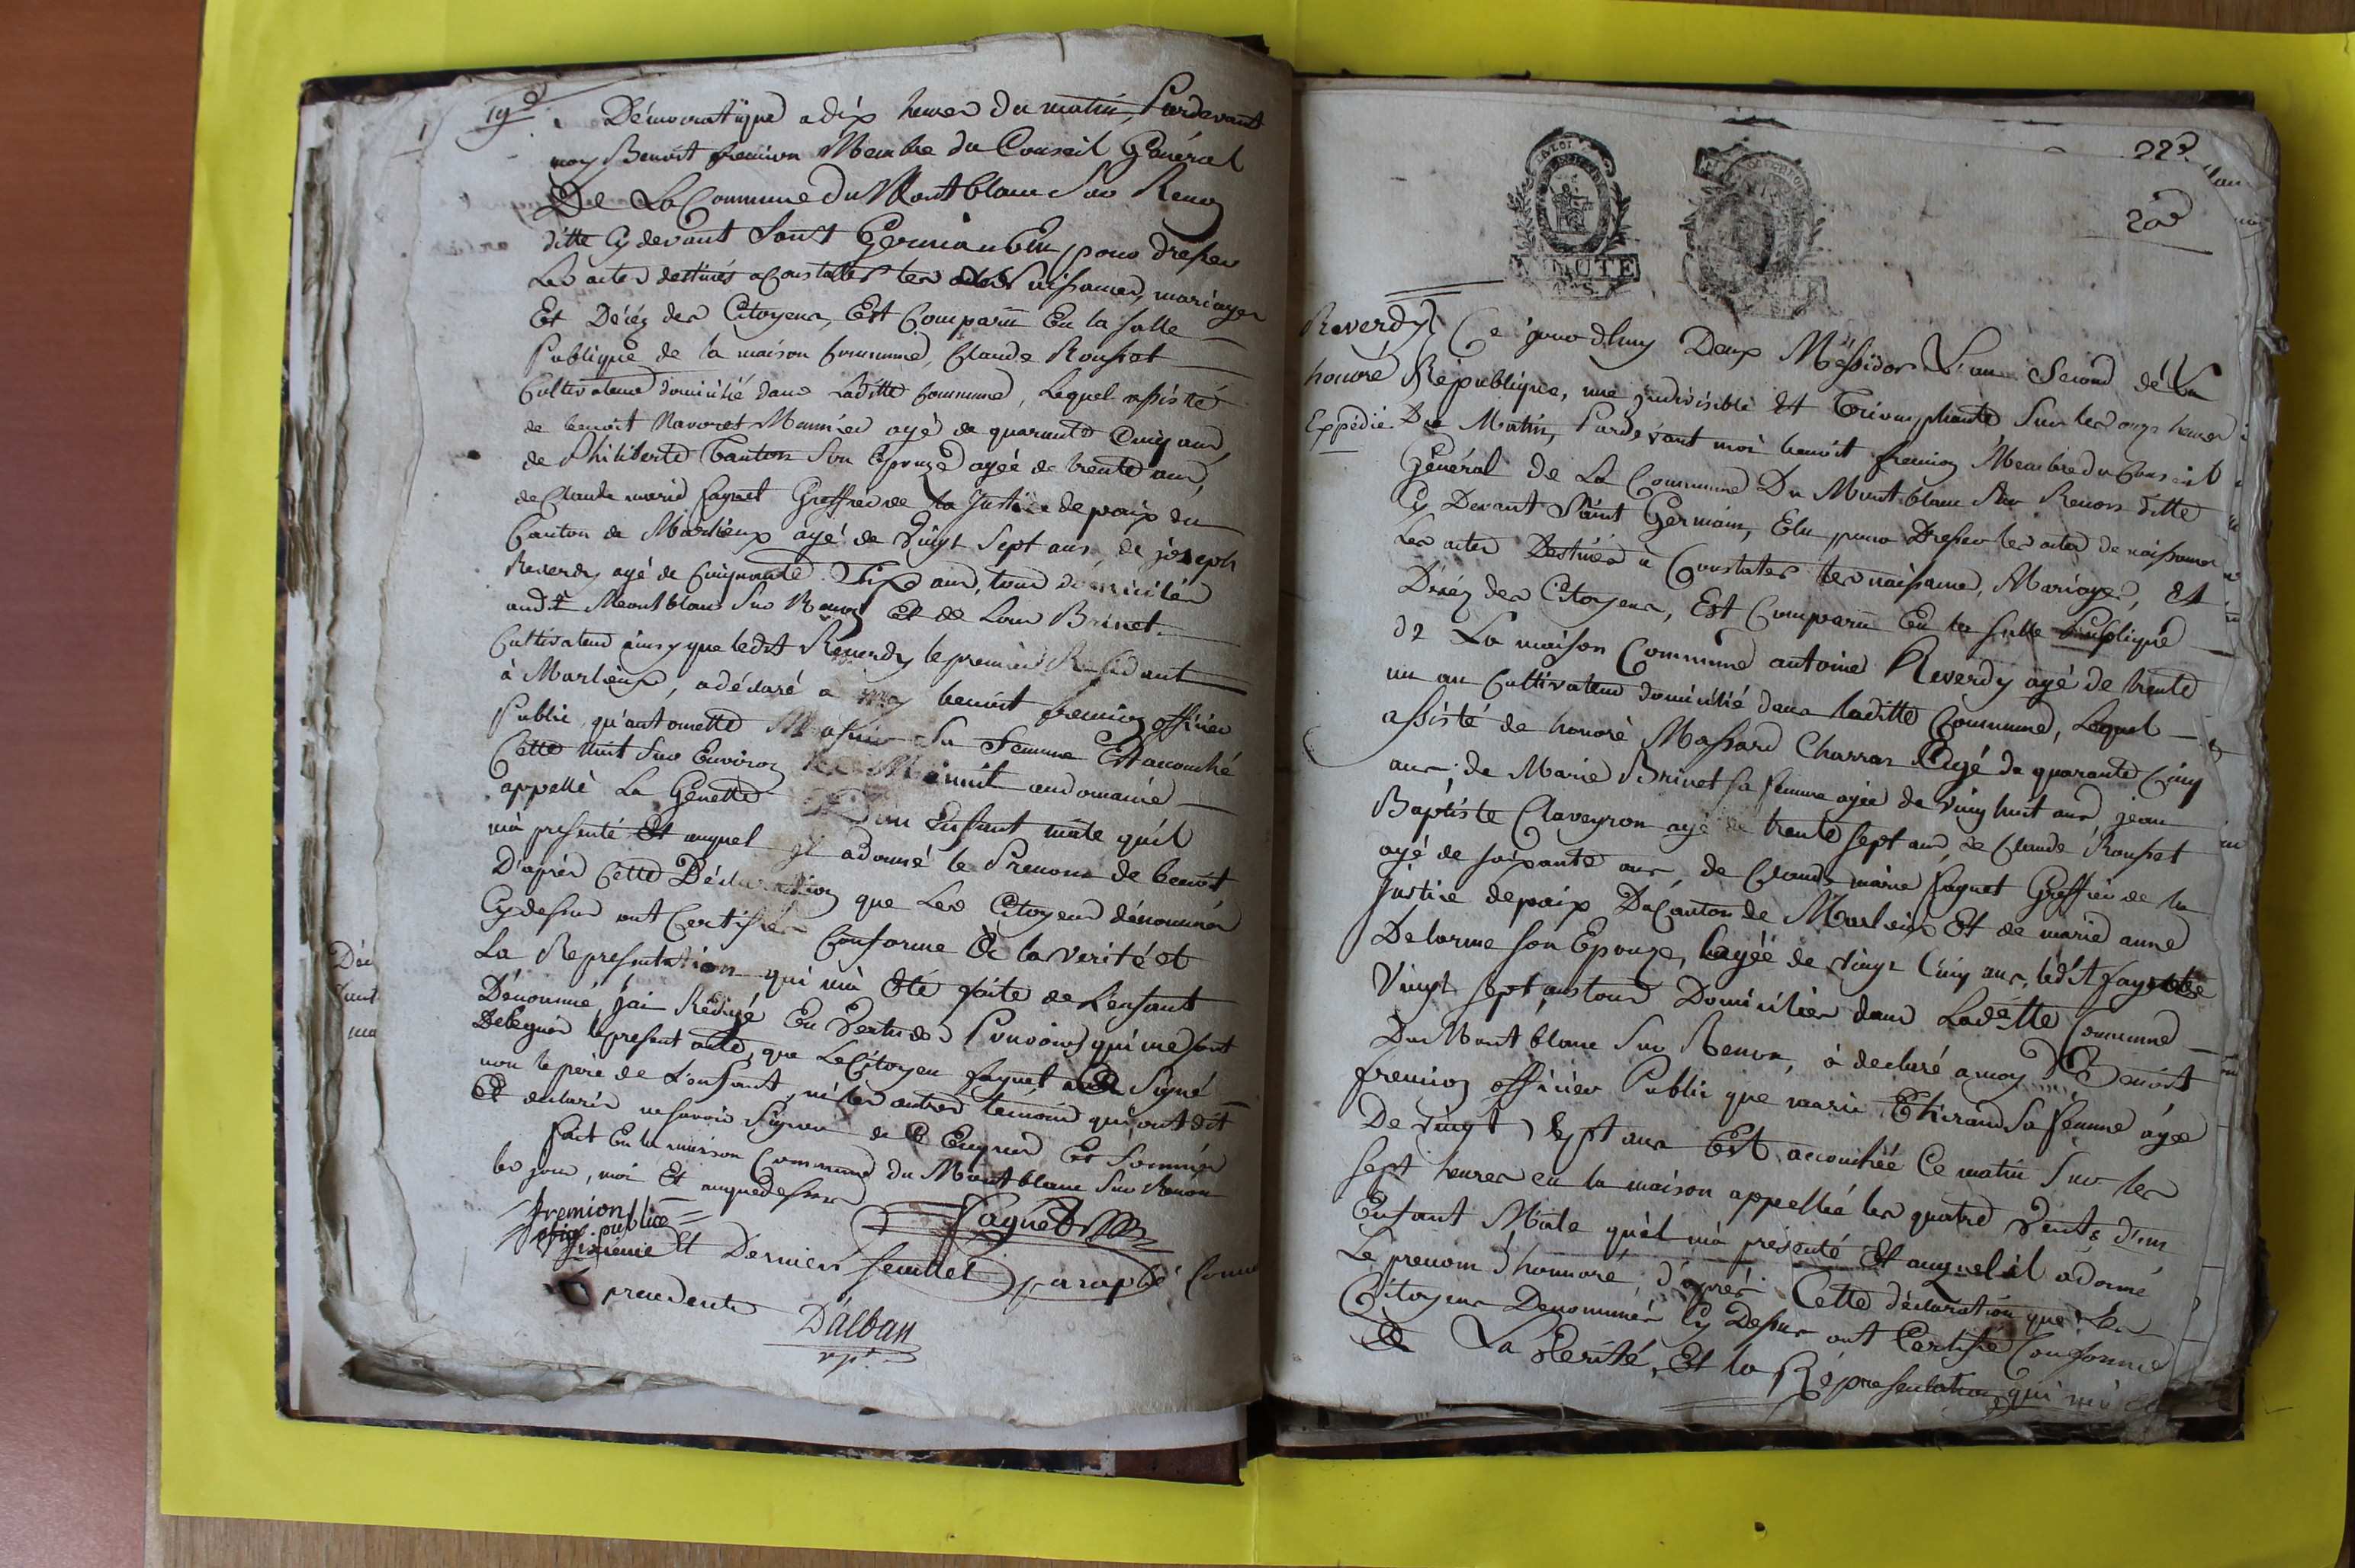 19
Démocratique a dix heures du matin, Pardevant
moy Benoit fremion Membre du Conseil Général
De La Commune du Montblanc Sur Renon
ditte Cy devant Saint Germain Elu pour dresser
Les actes destinés a Constatter les naissances, mariages
Et Décéz des Citoyens, Est Comparu En la salle
Publique de la maison Commune, Claude Rousset
Cultivateur domicilié dans Laditte Commune, Lequel assisté
de benoit Navoret Meunier agé de quarante Cinq ans,
de Philiberte Canton Son Epouze agée de trente ans,
de Claude marie fagnet Greffier de la Justice de paix du
Canton de Marlieux agé de Vingt Sept ans, de joseph
Reverdy agé de Cinquante Six ans, tous domiciliés
audit Montblanc Sur Renon Et de Louis Brinet
Cultivateur ainsy que ledit Reverdy le premier Residant
à Marlieux, a déclaré a moy benoit fremion officier
Public, qu'antoinette Sa Femme Est accouché
Cette Nuit Sur Environ Minuit au domaine
appellé La Genette D'un Enfant mâle qu'il
m'a presenté Et auquel il a donné le Prenom de benoit
D'après Cette Déclaration que Les Citoyens dénommés
Cy dessus ont Certifiés Conforme à la Verité et
La Representation qui m'a Eté faite de L'enfant
Dénommé, J'ai Rédigé En Vertu des Pouvoirs qui me sont
Delegués le present acte, que Le Citoyen fagnet a Signé
non le père de L'enfant, ni les autres temoins qui ont dit
Et déclarés ne savoir Signer de ce Enquis Et Sommés
fait En la maison Commune du Montblanc Sur Renon
les jour, moi Et an que dessus
fremion
off. public
fagnet
Sixieme Et Dernier feuillet paraphé Comme
precedents
D'alban
vpt.
22
20
MINUTE
Reverdy
honoré
Expédié
Ce jourdhuy Deux Messidor L'an Second dela
Republique, une indivisible Et Triomphante Sur les onze heures
Du Matin, Pardevant moi benoit fremion Membre du Conseil
Général de La Commune Du Montblanc Sur Renon ditte
Cy Devant Saint Germain, Elu pour Dresser les actes de naissance
Les actes Destinés à Constater les naissances, Mariages, Et
Décéz des Citoyens, Est Comparu En la Salle Publique
de La maison Commune antoine Reverdy agé de trente
un an Cultivateur domicilié dans laditte Commune, Lequel
assisté de honoré Massard Charron Agé de quarante Cinq
ans, de Marie Brinet sa femme agée de vingt huit ans, jean
Baptiste Claveyron agé de trente sept ans, de Claude Rousset
agé de soixante ans, de Claude marie fagnet Greffier de la
justice de paix Du Canton de Marlieux Et de marie anne
Delorme son Epouze, Lagée de vingt Cinq ans, ledit fagnet de
Vingt sept ans tous Domiciliés dans Laditte Commune
Du Mont blanc Sur Renon, à declaré a moy Benoit
fremion officier Public que marie Sa femme agée
De vingt sept ans Est accouchée Ce matin Sur les
Sept heures en la maison appellée les quatre Vents d'un
Enfant Mâle qu'il m'a presenté Et auquel il a donné
Le prenom d'honnoré, d'après Cette déclaration que les
Citoyens Denommés Cy Dessus ont Certifié Conforme
à La Verité, Et la Représentation qui m'a